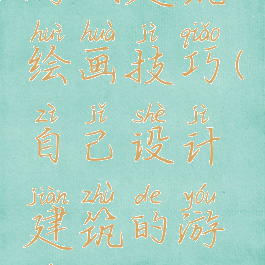 huì huà jì qiǎo
绘画技巧(
zì jǐ shè jì
自己设计
jiàn zhù de yóu
建筑的游